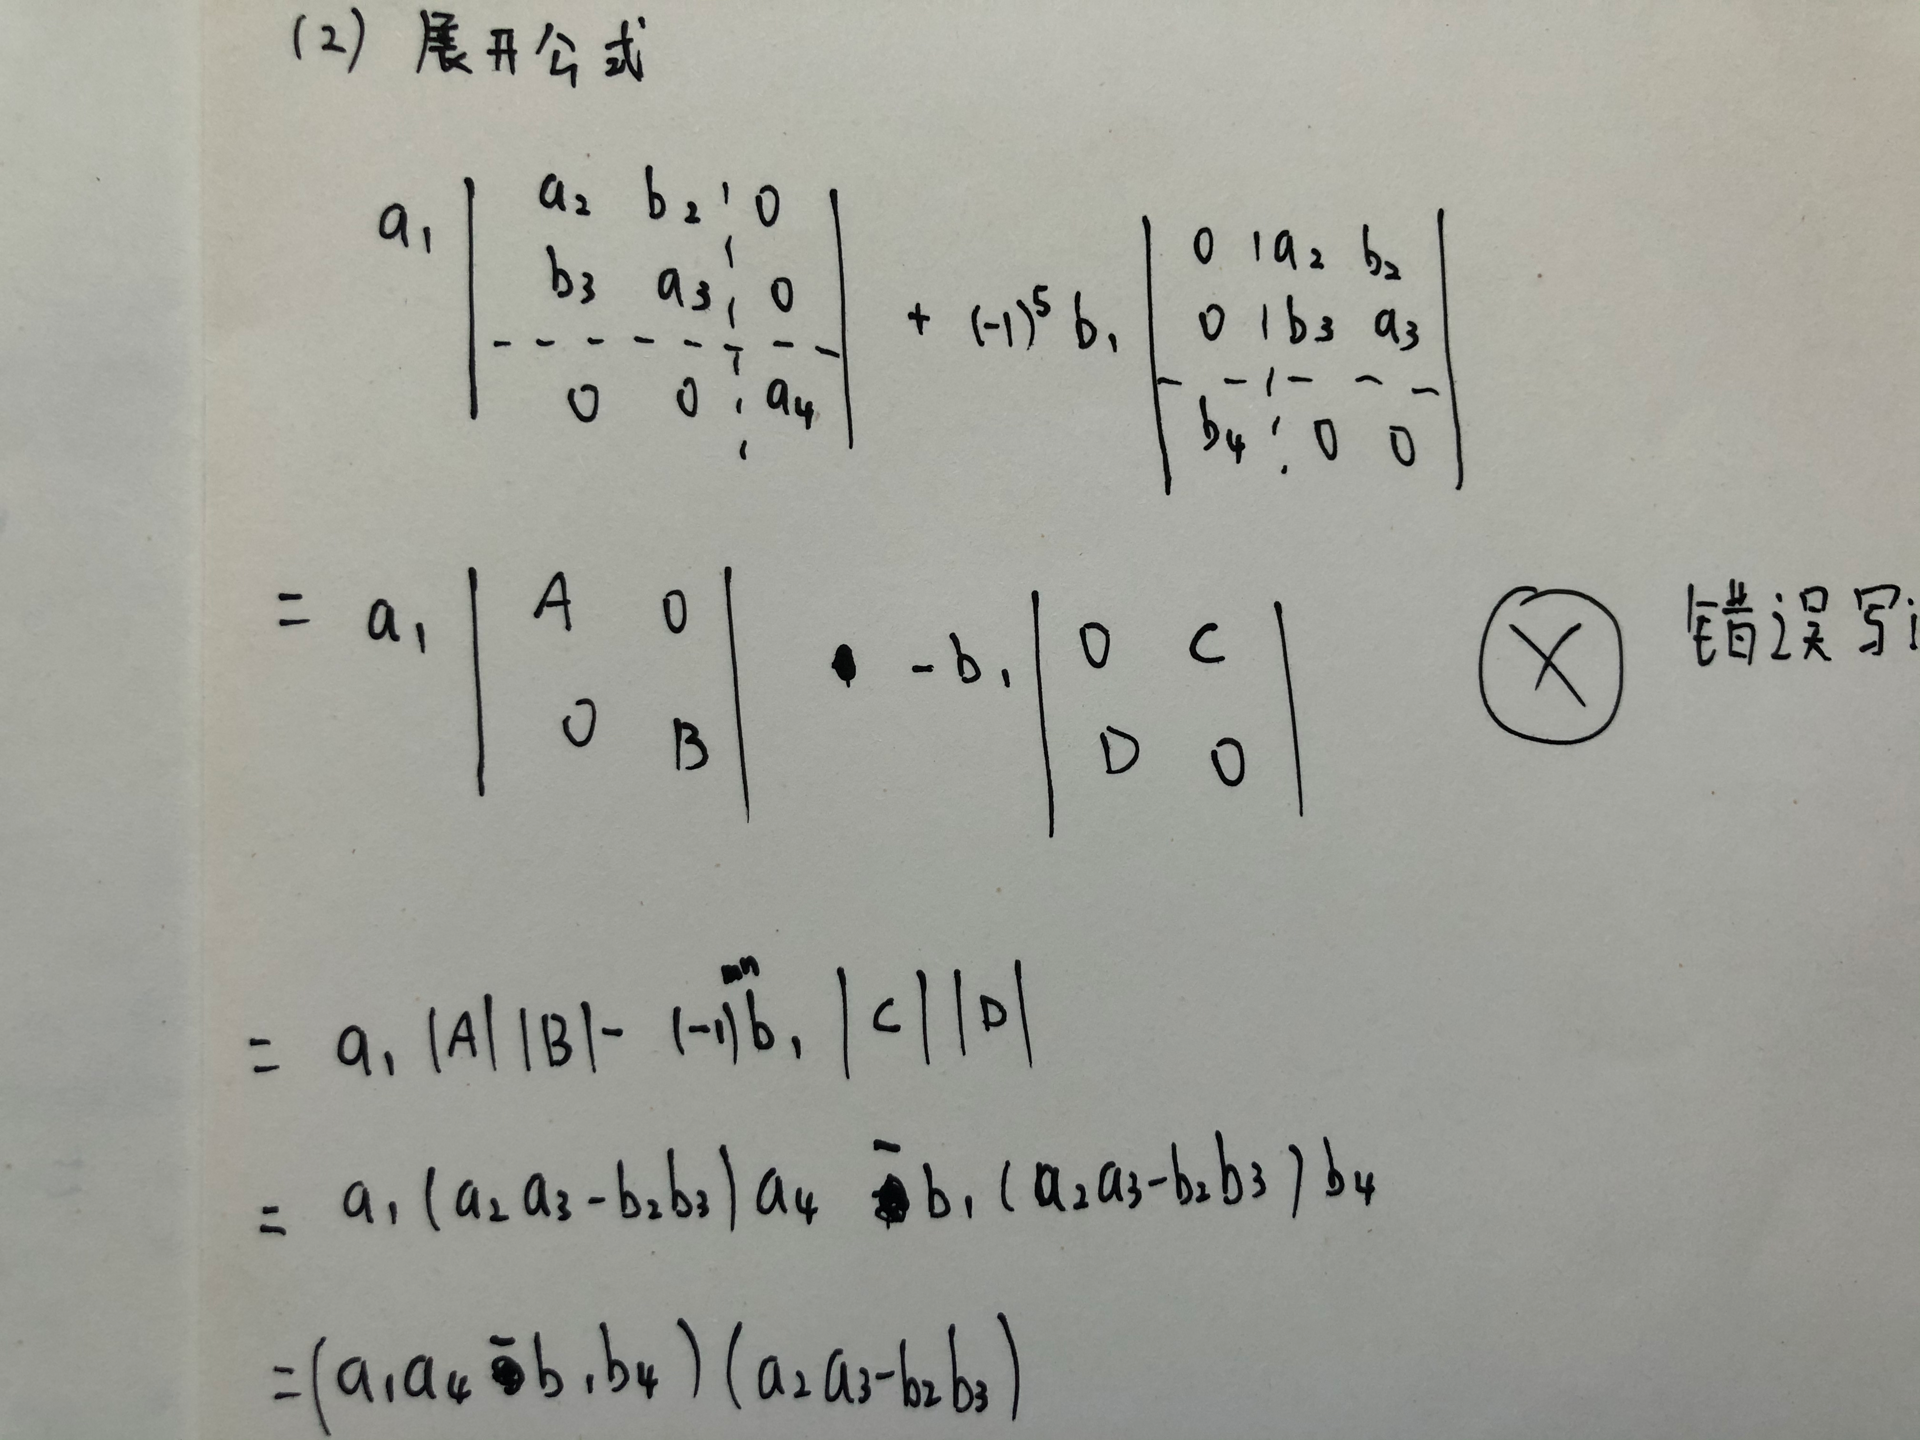 (2) 展开公式
a₁ | a₂ b₂ ¦ 0 |
| b₃ a₃ ¦ 0 |
| 0 0 ¦ a₄ |
+ (-1)⁵ b₁ | 0 ¦ a₂ b₂ |
| 0 ¦ b₃ a₃ |
| b₄ ¦ 0 0 |
= a₁ | A 0 |
| 0 B |
- b₁ | 0 C |
| D 0 |
错误写
= a₁ |A| |B| - (-1)ᵐⁿ b₁ |C| |D|
= a₁ (a₂ a₃ - b₂ b₃) a₄ - b₁ (a₂ a₃ - b₂ b₃) b₄
= (a₁ a₄ - b₁ b₄) (a₂ a₃ - b₂ b₃)